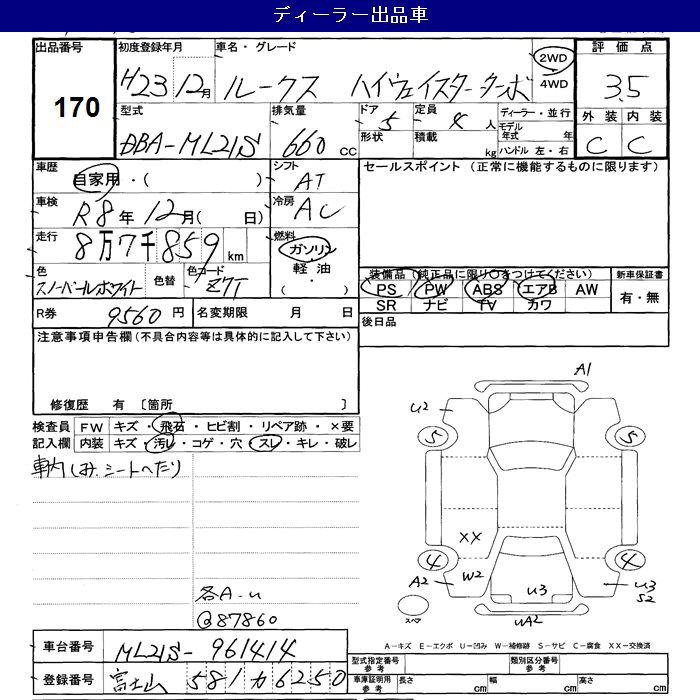 ディーラー出品車
出品番号 初度登録年月 車名・グレード 評価点
170
H23 12月 ルークス ハイウェイスターターボ 2WD 4WD 3.5
型式 排気量 ドア 定員 ディーラー・並行 外装 内装
DBA-ML21S 660 CC 5 4人 モデル年式 年 C C
形状 積載 kg ハンドル 左・右
車歴 自家用・( ) シフト AT セールスポイント (正常に機能するものに限ります)
車検 R8年12月( 日) 冷房 AC
走行 8万7千859 km 燃料 ガソリン
軽油
・
( )
色 スノーパールホワイト 色替 色コード Z7T
装備品(純正品に限り○をつけてください) 新車保証書
PS PW ABS エアB AW 有・無
SR ナビ TV カワ
R券 9560円 名変期限 月 日 後日品
注意事項申告欄(不具合内容等は具体的に記入して下さい)
修復歴 有 [箇所 ]
検査員 FW キズ・飛石・ヒビ割・リペア跡・×要
記入欄 内装 キズ・汚レ・コゲ・穴・スレ・キレ・破レ
車内しみ、シートへたり
各A-U
@87860
A1
U2
5 5
XX
4 4
A2 W2 U3 U3
S2
スペア UA2
A-キズ E-エクボ U-凹み W-補修跡 S-サビ C-腐食 XX-交換済
車台番号 ML21S-961414
型式指定番号 参考 類別区分番号 参考
登録番号 富士山 581 カ 6250
車庫証明用 参考 長さ cm 幅 cm 高さ cm